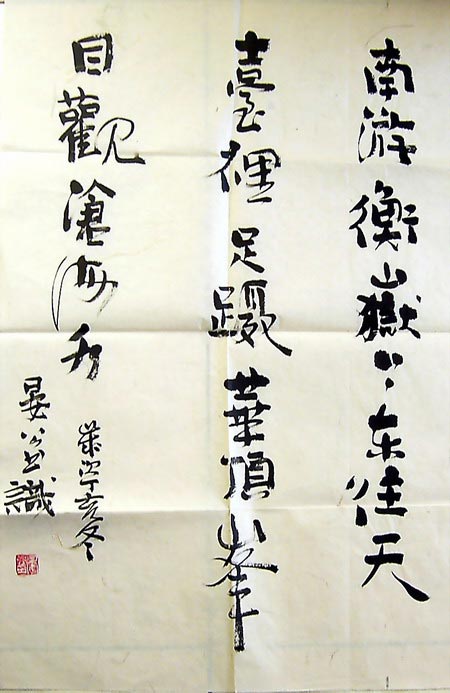 南游衡嶽上东往天
臺裡足蹑華頂峯
目觀滄海水
歲次丁亥冬
晏識